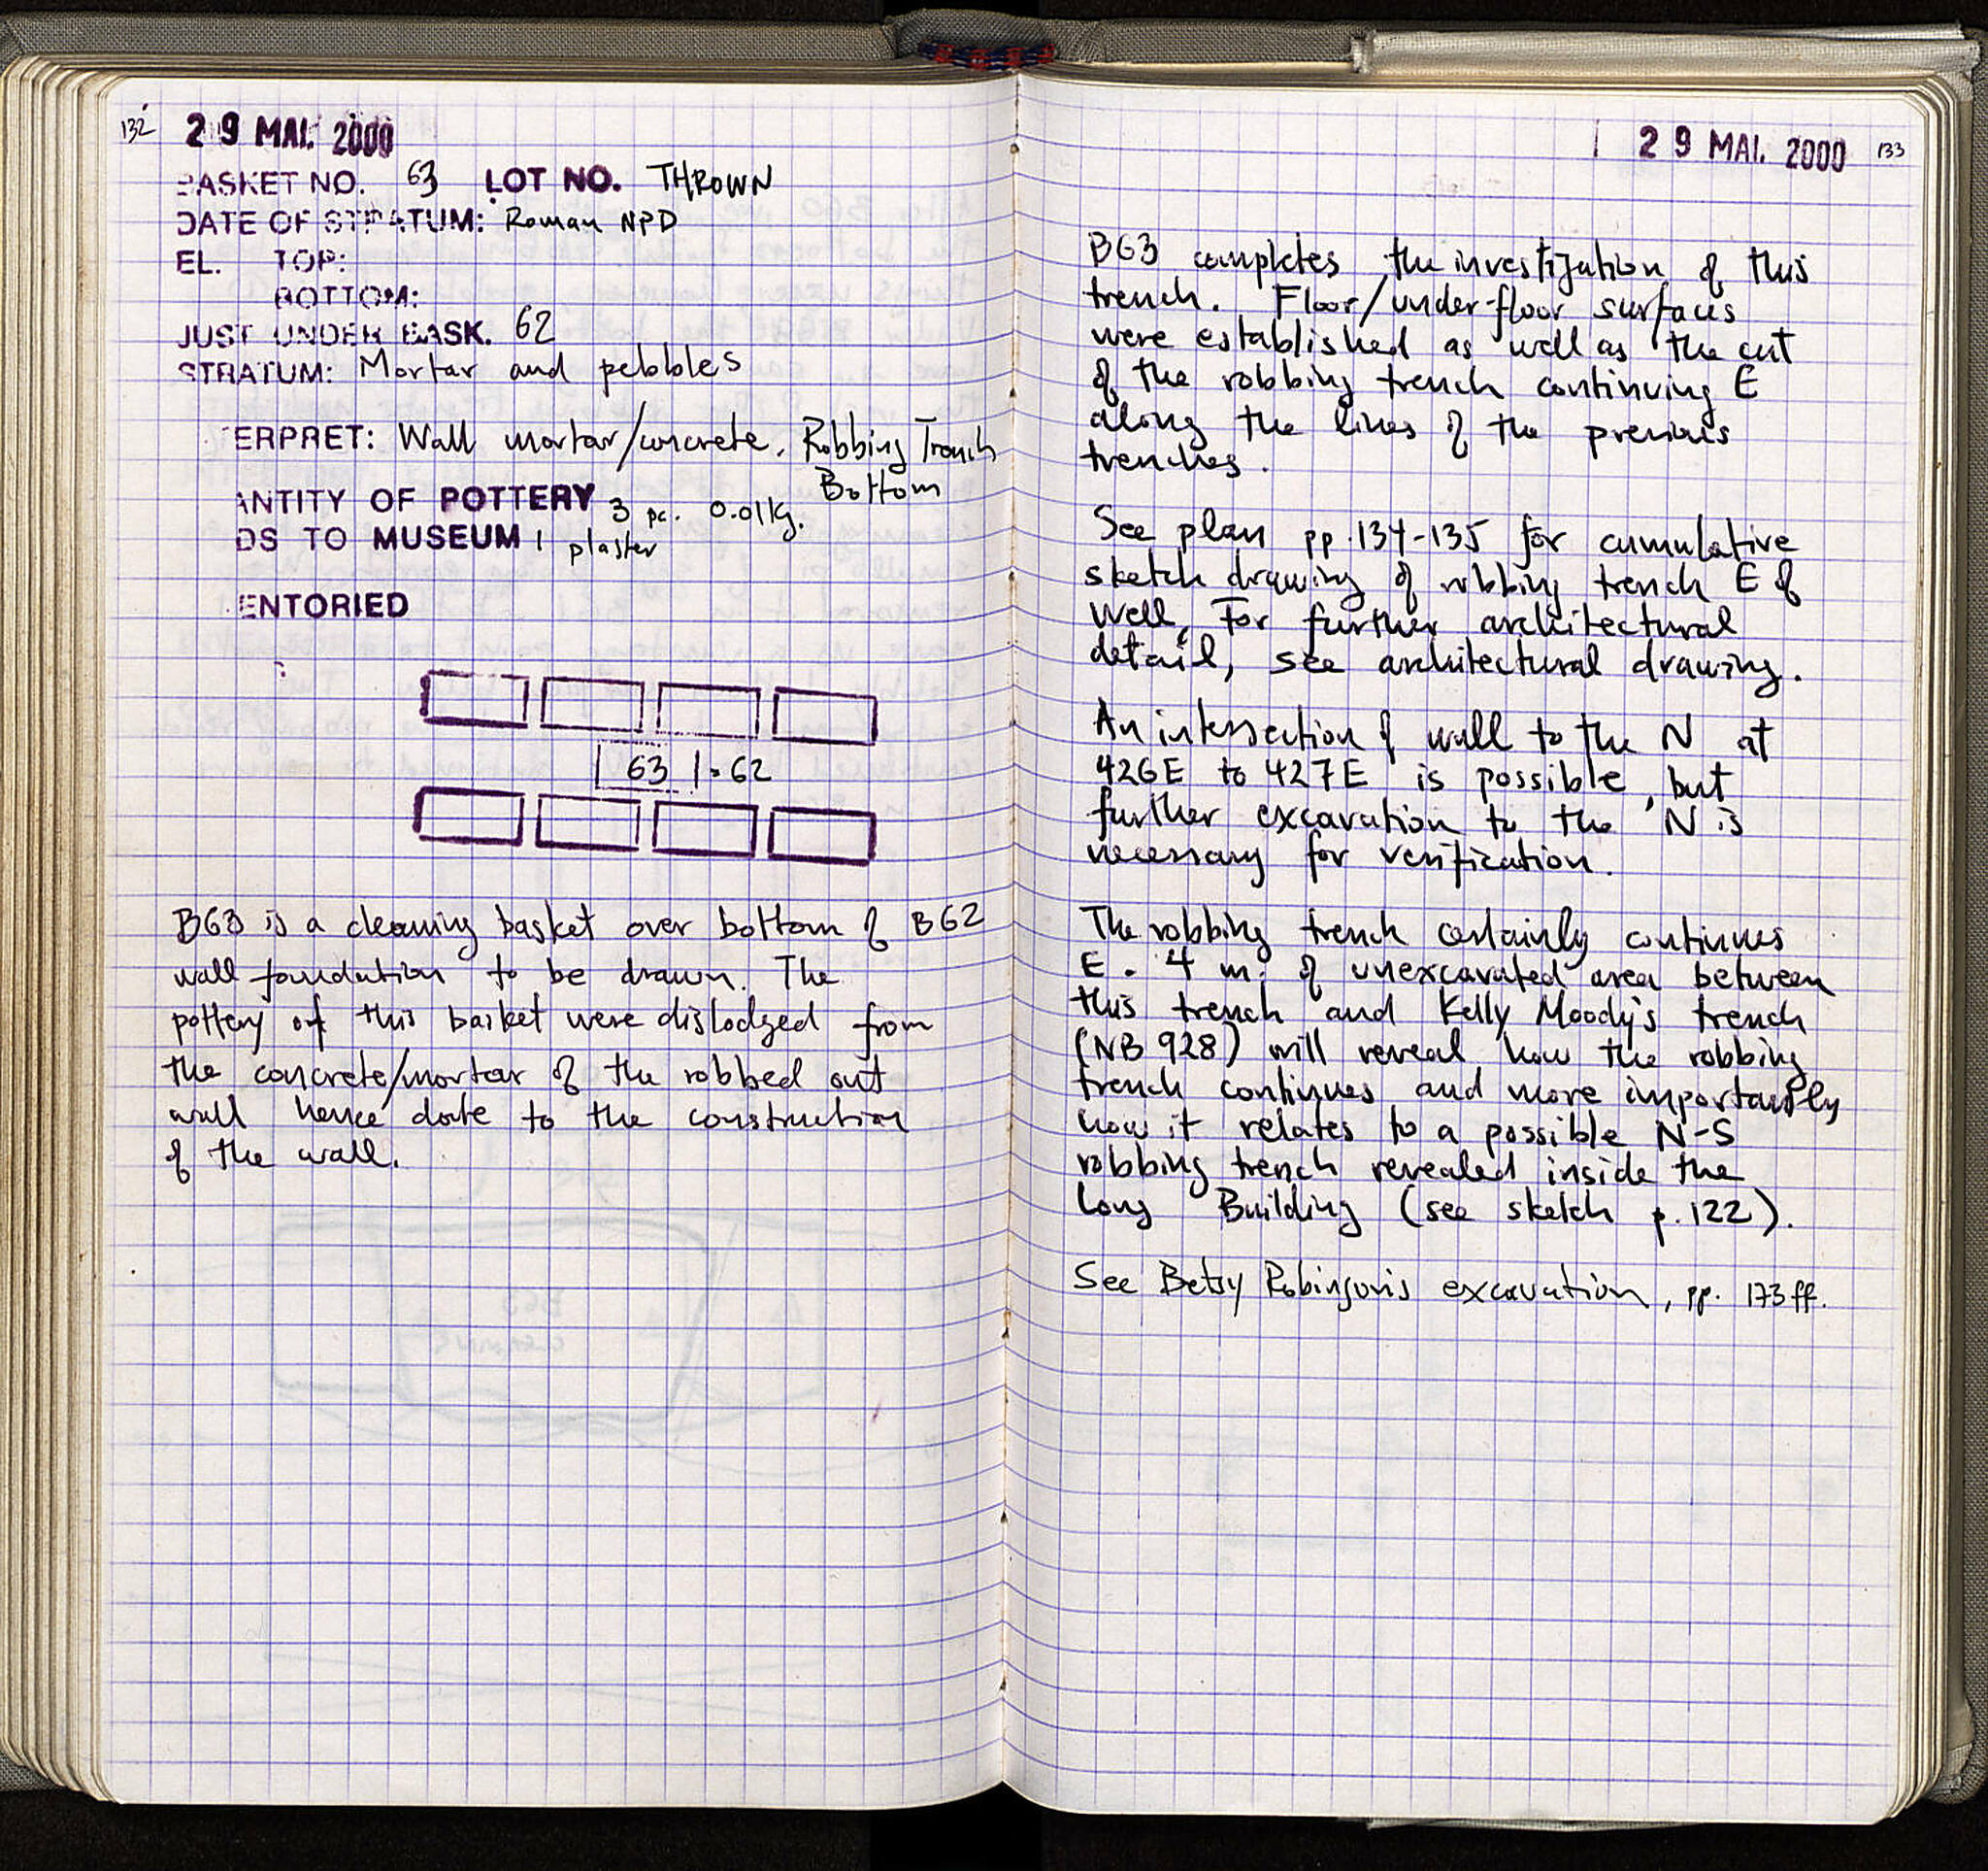 132
29 MAI. 2000
BASKET NO. 63 LOT NO. THROWN
DATE OF STRATUM: Roman NPD
EL. TOP:
BOTTOM:
JUST UNDER BASK. 62
STRATUM: Mortar and pebbles
ERPRET: Wall mortar/concrete. Robbing Trench
Bottom
ANTITY OF POTTERY 3 pc. 0.01kg.
DS TO MUSEUM 1 plaster
ENTORIED
63 62
B63 is a cleaning basket over bottom of B62
wall foundation to be drawn. The
pottery of this basket were dislodged from
the concrete/mortar of the robbed out
wall hence date to the construction
of the wall.
29 MAI. 2000
133
B63 completes the investigation of this
trench. Floor/under-floor surfaces
were established as well as the cut
of the robbing trench continuing E
along the lines of the previous
trenches.
See plan pp.134-135 for cumulative
sketch drawing of robbing trench E of
well. For further architectural
detail, see architectural drawing.
An intersection of wall to the N at
426E to 427E is possible, but
further excavation to the N is
necessary for verification.
The robbing trench certainly continues
E. 4 m. of unexcavated area between
this trench and Kelly Moody's trench
(NB 928) will reveal how the robbing
trench continues and more importantly
how it relates to a possible N-S
robbing trench revealed inside the
Long Building (see sketch p.122).
See Betsy Robinson's excavation, pp. 173ff.